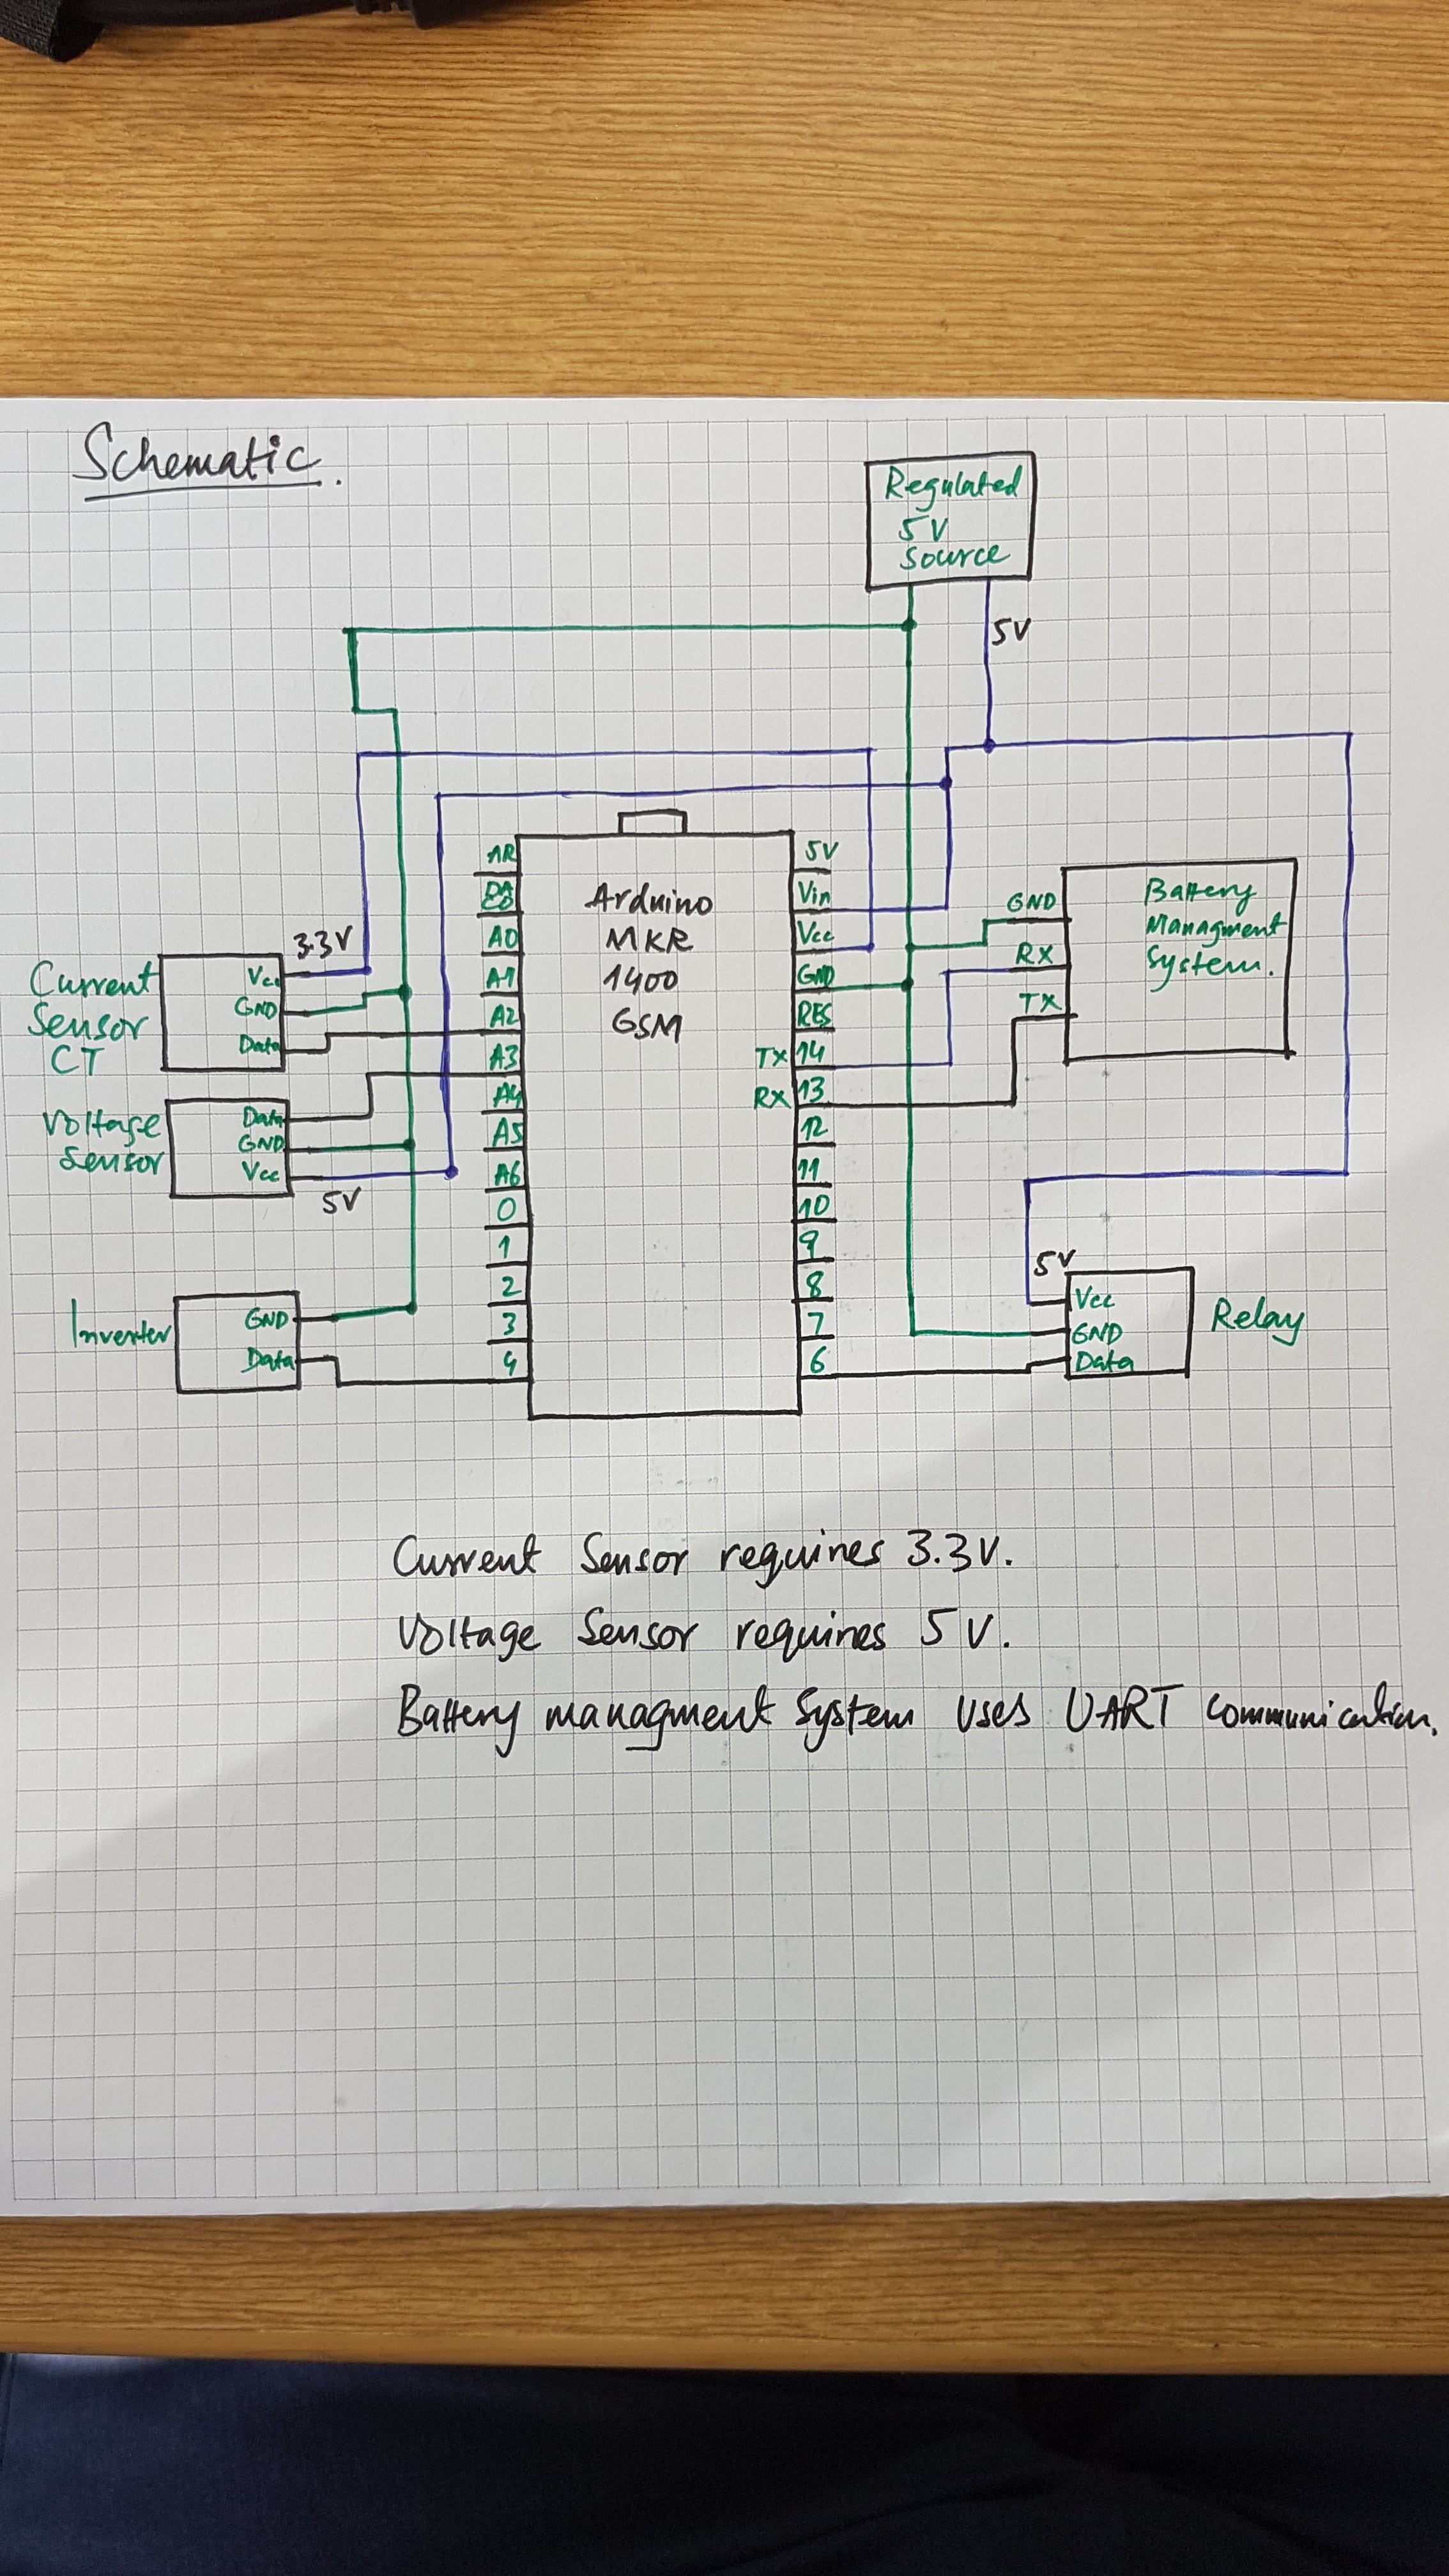 Schematic.
Regulated
5V
Source
5V
AR
A0
A1
A2
A3
A4
A5
A6
0
1
2
3
4
Arduino
MKR
1400
GSM
5V
Vin
Vcc
GND
RES
TX 14
RX 13
12
11
10
9
8
7
6
Battery
Managment
System.
GND
RX
TX
3.3V
Current
Sensor
CT
Vcc
GND
Data
Voltage
Sensor
Data
GND
Vcc
5V
Inverter
GND
Data
5V
Vcc
GND
Data
Relay
Current Sensor requires 3.3V.
Voltage Sensor requires 5V.
Battery managment System uses UART communication.